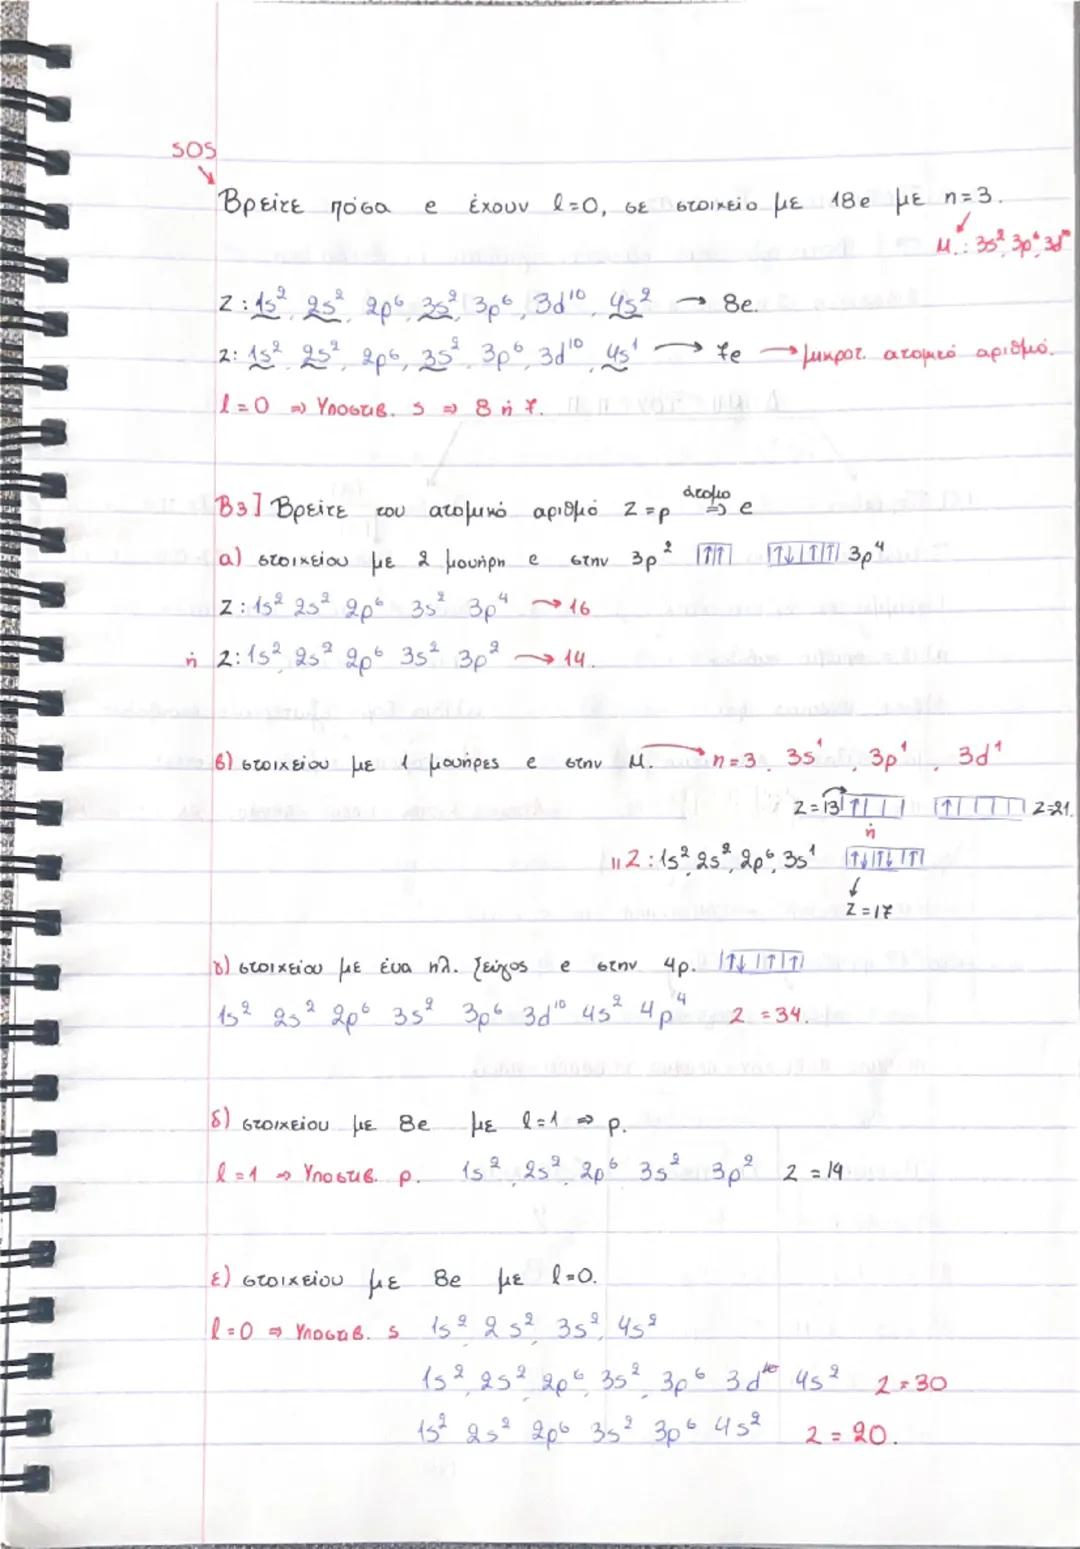 SOS
Βρείτε πόσα e έχουν l=0, σε στοιχείο με 18e με n=3.
Μ.: 3s² 3p⁶ 3d¹⁰
Z: 1s², 2s², 2p⁶, 3s², 3p⁶, 3d¹⁰, 4s² → 8e.
Z: 1s², 2s², 2p⁶, 3s², 3p⁶, 3d¹⁰, 4s¹ → 7e → μικροτ. ατομικό αριθμό.
l=0 ⇒ Υποστιβ. s ⇒ 8 ή 7.
Β3] Βρείτε τον ατομικό αριθμό Z=p άτομο ⇒ e
α) στοιχείου με 2 μονήρη e στην 3p² |↑|↑| |↑↓|↑|↑| 3p⁴
Z: 1s² 2s² 2p⁶ 3s² 3p⁴ → 16
ή Z: 1s², 2s² 2p⁶ 3s² 3p² → 14.
β) στοιχείου με 1 μονήρες e στην Μ. → n=3. 3s¹, 3p¹, 3d¹
Z=13 |↑| | | |↑| | | | | Z=21.
ή
11 Z: 1s², 2s², 2p⁶, 3s¹ |↑↓|↑↓|↑|
↓
Z=17
γ) στοιχείου με ένα ηλ. ζεύγος e στην 4p. |↑↓|↑|↑|
1s² 2s² 2p⁶ 3s² 3p⁶ 3d¹⁰ 4s² 4p⁴ Z = 34.
δ) στοιχείου με 8e με l=1 ⇒ p.
l=1 ⇒ Υποστιβ. p. 1s², 2s², 2p⁶ 3s² 3p² Z = 14
ε) στοιχείου με 8e με l=0.
l=0 ⇒ Υποστιβ. s 1s², 2s², 3s², 4s²
1s², 2s², 2p⁶, 3s², 3p⁶ 3d¹⁰ 4s² Z=30
1s² 2s² 2p⁶ 3s² 3p⁶ 4s² Z = 20.